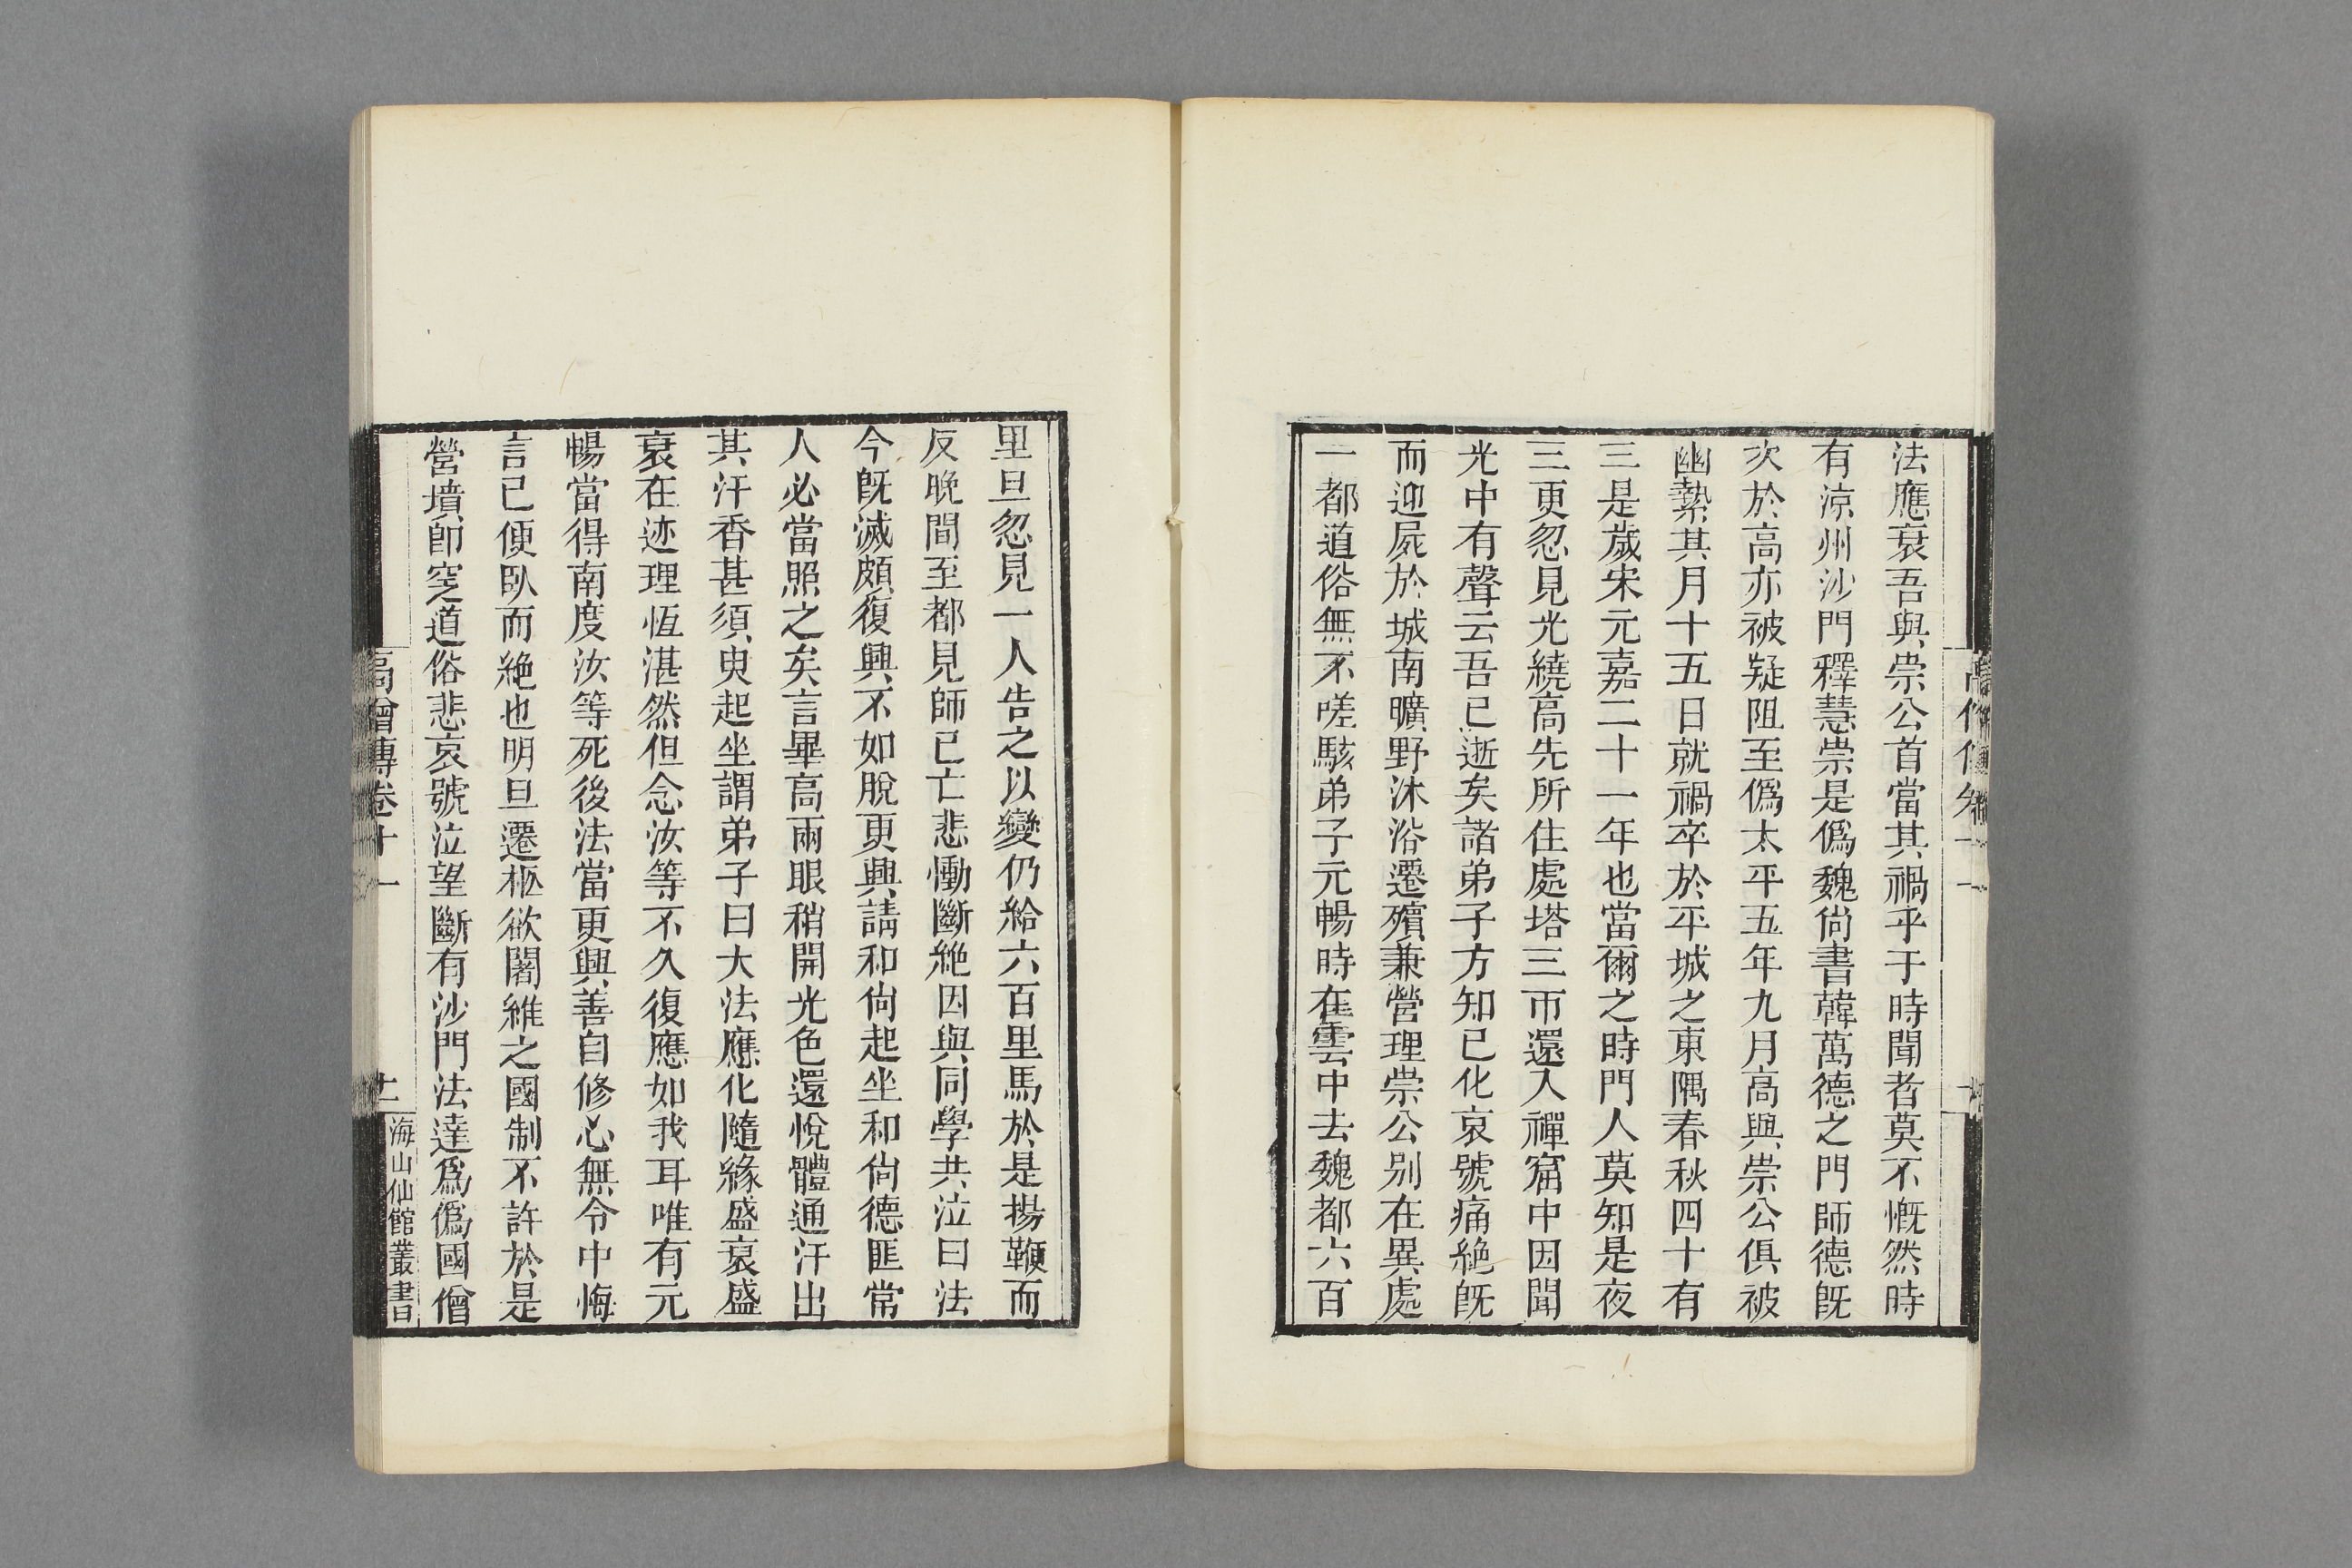 法應衰吾與崇公首當其禍乎于時聞者莫不慨然時
有涼州沙門釋慧崇是僞魏尚書韓萬德之門師德既
次於高亦被疑阻至僞太平五年九月高與崇公俱被
幽縶其月十五日就禍卒於平城之東隅春秋四十有
三是歲宋元嘉二十一年也當爾之時門人莫知是夜
三更忽見光繞高先所住處塔三帀還入禪窟中因聞
光中有聲云吾已逝矣諸弟子方知已化哀號痛絶既
而迎屍於城南曠野沐浴遷殯兼營理崇公别在異處
一都道俗無不嗟駭弟子元暢時在雲中去魏都六百
里旦忽見一人告之以變仍給六百里馬於是揚鞭而
反晚間至都見師已亡悲慟斷絶因與同學共泣曰法
今既滅頗復興不如脫更興請和尙起坐和尙德匪常
人必當照之矣言畢高兩眼稍開光色還悅體通汗出
其汗香甚須臾起坐謂弟子曰大法應化隨緣盛衰盛
衰在迹理恆湛然但念汝等不久復應如我耳唯有元
暢當得南度汝等死後法當更興善自修心無令中悔
言已便臥而絶也明旦遷柩欲闍維之國制不許於是
營墳卽窆道俗悲哀號泣望斷有沙門法達爲僞國僧
高僧傳卷十一
海山仙館叢書